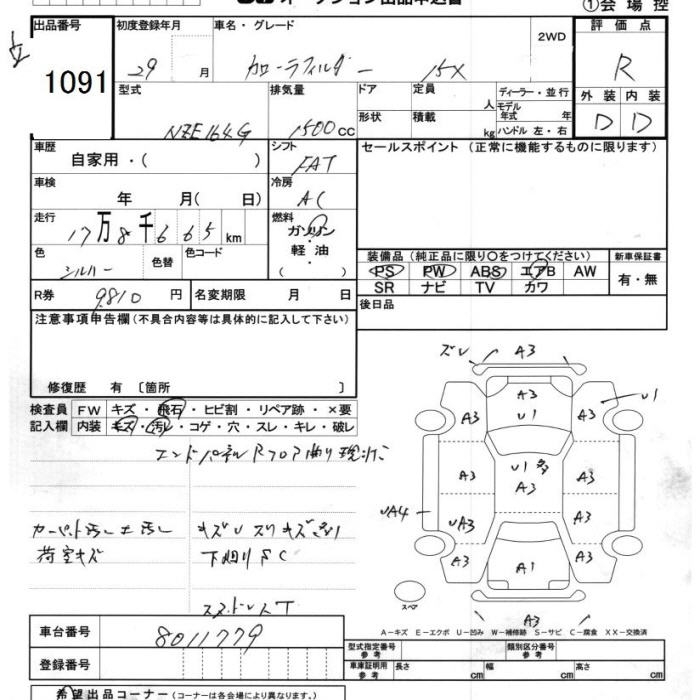 オークション出品申込書
①会場控
出品番号
1091
初度登録年月
29 月
車名・グレード
カローラフィルダー 15X
2WD
評価点
R
型式
NZE164G
排気量
1500cc
ドア
定員
人
形状
積載
kg
ディーラー・並行
モデル年式 年
ハンドル 左・右
外装 内装
D D
車歴
自家用・( )
シフト
FAT
セールスポイント(正常に機能するものに限ります)
車検
年 月( 日)
冷房
AC
走行
17万8千665km
燃料
ガソリン
軽油
( ・ )
色
シルバー
色替
色コード
装備品(純正品に限り○をつけてください)
PS PW ABS エアB AW
SR ナビ TV カワ
新車保証書
有・無
R券
9810円
名変期限 月 日
後日品
注意事項申告欄(不具合内容等は具体的に記入して下さい)
修復歴 有〔箇所 〕
検査員記入欄
FW キズ・飛石・ヒビ割・リペア跡・×要
内装 キズ・汚レ・コゲ・穴・スレ・キレ・破レ
エンドパネルRフロア曲り現状
カーペット汚レ土汚レ
荷室キズ
キズUスリキズ多り
下廻りSC
スタッドレスT
ズレ A3
A3
U1
U1
A3
A3
A3
U1多
A3
A3
UA4
UA3
A3
A3
A3
A1
A3
スペア
A-キズ E-エクボ U-凹み W-補修跡 S-サビ C-腐食 XX-交換済
車台番号
8011779
登録番号
型式指定番号 参考
類別区分番号 参考
車庫証明用 参考
長さ cm
幅 cm
高さ cm
希望出品コーナー(コーナーは各会場により異なります。)